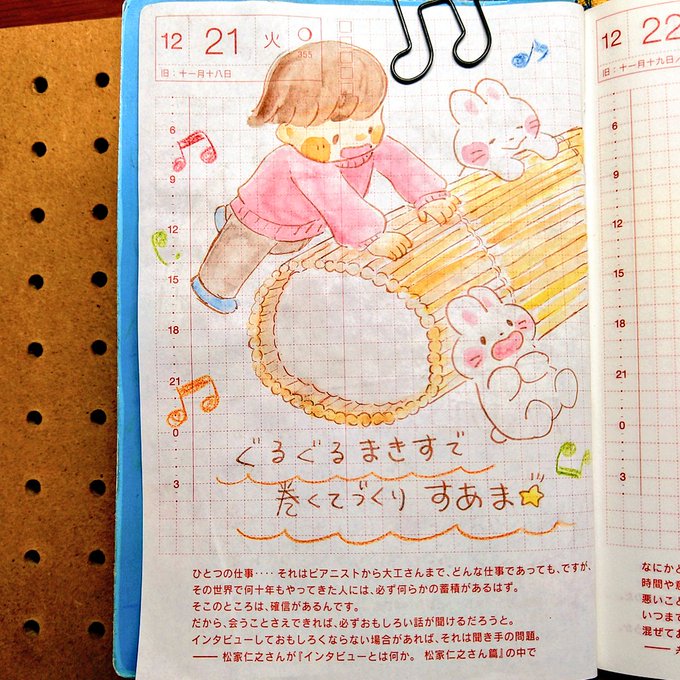 12 21 火
355
旧：十一月十八日
6
9
12
15
18
21
0
3
ぐるぐる まきすで
巻くてづくり すあま
ひとつの仕事‥‥ それはピアニストから大工さんまで、どんな仕事であっても、ですが、
その世界で何十年もやってきた人には、必ず何らかの蓄積があるはず。
そこのところは、確信があるんです。
だから、会うことさえできれば、必ずおもしろい話が聞けるだろうと。
インタビューしておもしろくならない場合があれば、それは聞き手の問題。
―― 松家仁之さんが『インタビューとは何か。 松家仁之さん篇』の中で
12 22
旧：十一月十九日
6
9
12
15
18
21
0
3
なにかと
時間や意
悪いこと
いつまで
混ぜてお